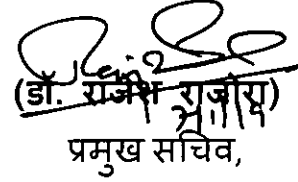 (डॉ. राजेश राजोरा)
प्रमुख सचिव,